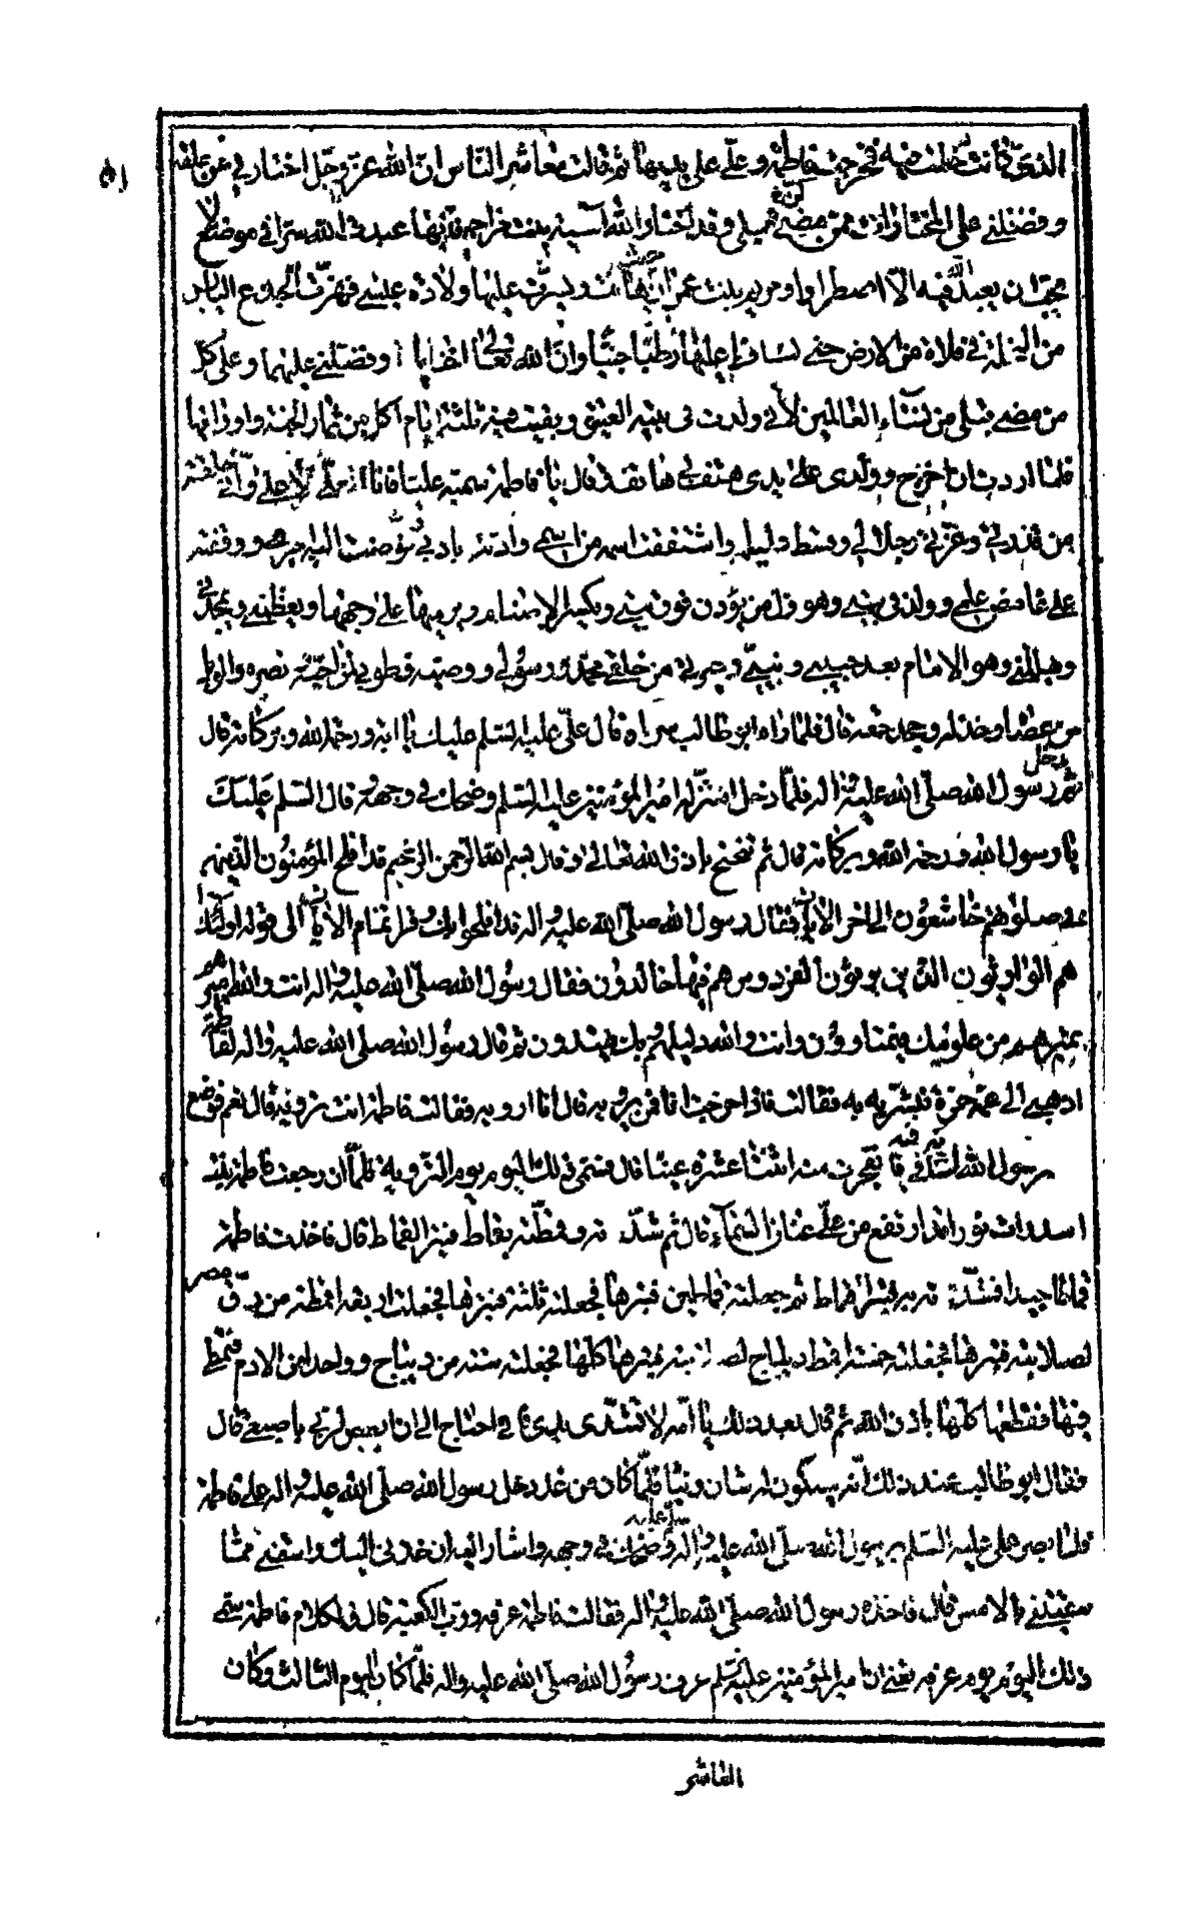 الذي كانت دخلت فيه فخرجت فاطمة وعلي على يديها ثم قالت معاشر الناس ان الله عز وجل اختارني من خلقه
وفضلني على المختارات ممن مضى قبلي وقد اختار الله آسية بنت مزاحم فانها عبدت الله سرا في موضع لا
يحب ان يعبد الله فيه الا اضطرارا ومريم بنت عمران هانت ويسرت عليها ولادة عيسى فهزت الجذع اليابس
من النخلة في فلاة من الارض حتى تساقط عليها رطبا جنيا وان الله تعالى اختارني وفضلني عليهما وعلى كل
من مضى قبلي من نساء العالمين لاني ولدت في بيته العتيق وبقيت فيه ثلثة ايام آكل من ثمار الجنة واوراقها
فلما اردت ان اخرج وولدي على يدي هتف بي هاتف وقال يا فاطمة سميه عليا فانا العلي الاعلى واني خلقته
من قدرتي وعز جلالي وقسط عدلي واشتققت اسمه من اسمي وادبته بادبي وفوضت اليه امري ووقفته
على غامض علمي وولد في بيتي وهو اول من يؤذن فوق بيتي ويكسر الاصنام ويرميها على وجهها ويعظمني ويمجدني
ويهللني وهو الامام بعد حبيبي ونبيي وخيرتي من خلقي محمد رسولي ووصيه فطوبى لمن احبه ونصره والويل
لمن عصاه وخذله وجحد حقه قال فلما رآه ابو طالب سر به قال علي عليه السلم عليك يا ابه ورحمة الله وبركاته قال
ثم دخل رسول الله صلى الله عليه واله فلما دخل اهتز له امير المؤمنين عليه السلم وضحك في وجهه وقال السلم عليك
يا رسول الله ورحمة الله وبركاته قال ثم تنحنح باذن الله تعالى وقال بسم الله الرحمن الرحيم قد افلح المؤمنون الذين هم
في صلوتهم خاشعون الى اخر الايات فقال رسول الله صلى الله عليه واله قد افلحوا بك وقرا تمام الايات الى قوله اولئك
هم الوارثون الذين يرثون الفردوس هم فيها خالدون فقال رسول الله صلى الله عليه واله انت والله اميرهم
تميرهم من علومك فيمتارون وانت والله دليلهم وبك يهتدون ثم قال رسول الله صلى الله عليه واله لفاطمة
اذهبي الى عمه حمزة فبشريه به فقالت فاذا خرجت انا فمن يرويه قال انا ارويه فقالت فاطمة انت ترويه قال نعم فوضع
رسول الله لسانه في فيه فانفجرت منه اثنتا عشرة عينا قال فسمي ذلك اليوم يوم التروية فلما ان رجعت فاطمة بنت
اسد رات نورا قد ارتفع من علي عنان السماء قال ثم شدته وقمطته بقماط فبتر القماط قال فاخذت فاطمة
قماطا جيدا فشدته به فبتر القماط ثم جعلته قماطين فبترها فجعلته ثلثة فبترها فجعلته اربعة اقمطة من رق مصر
لصلابته فبترها فجعلته خمسة اقمطة ديباج لصلابته فبترها كلها فجعلته ستة من ديباج وواحدا من الادم فتمطى
فيها فقطعها كلها باذن الله ثم قال بعد ذلك يا امه لا تشدي يدي فاني احتاج الى ان ابصبص لربي باصبعي قال
فقال ابو طالب عند ذلك انه سيكون له شان ونبا فلما كان من غد دخل رسول الله صلى الله عليه واله على فاطمة
فلما بصر علي عليه السلم برسول الله صلى الله عليه واله سلم عليه وضحك في وجهه واشار اليه ان خذني اليك واسقني مما
سقيتني بالامس قال فاخذه رسول الله صلى الله عليه واله فقالت فاطمة عرفه ورب الكعبة قال فلكلام فاطمة سمي
ذلك اليوم يوم عرفه يعني ان امير المؤمنين عليه السلم عرف رسول الله صلى الله عليه واله فلما كان اليوم الثالث وكان
العاشر